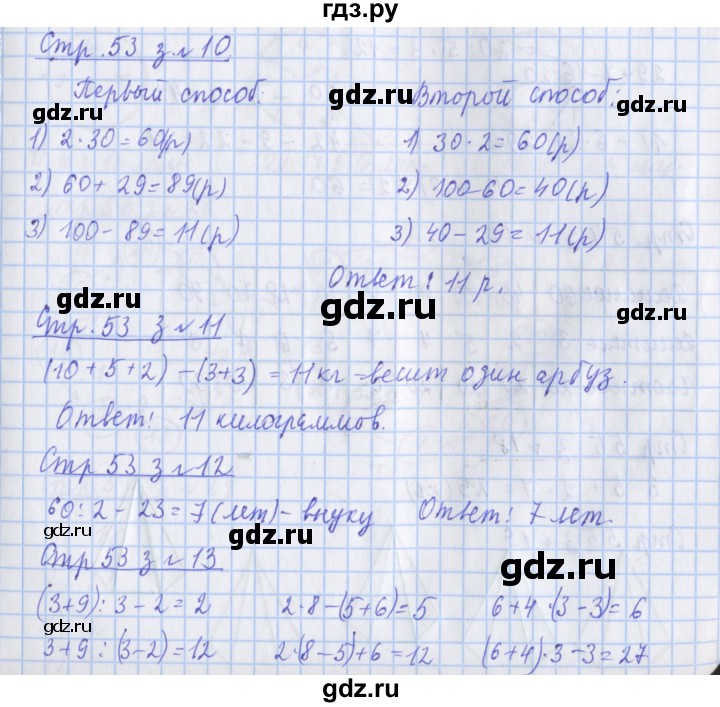 гдз.ру
Стр. 53 з. №10
Первый способ:
1) 2·30=60(р)
2) 60+29=89(р)
3) 100-89=11(р)
Второй способ:
1) 30·2=60(р)
2) 100-60=40(р)
3) 40-29=11(р)
Ответ: 11 р.
Стр. 53 з №11
(10+5+2)-(3+3)=11кг=весит один арбуз.
Ответ: 11 килограммов.
Стр 53 з №12
60:2-23=7(лет)-внуку Ответ: 7 лет.
Стр 53 з №13
(3+9):3-2=2 2·8-(5+6)=5 6+4·(3-3)=6
3+9:(3-2)=12 2·(8-5)+6=12 (6+4)·3-3=27
gdz.ru
gdz.ru
gdz.ru
gdz.ru
gdz.ru
gdz.ru
gdz.ru
gdz.ru
gdz.ru
gdz.ru
gdz.ru
gdz.ru
gdz.ru